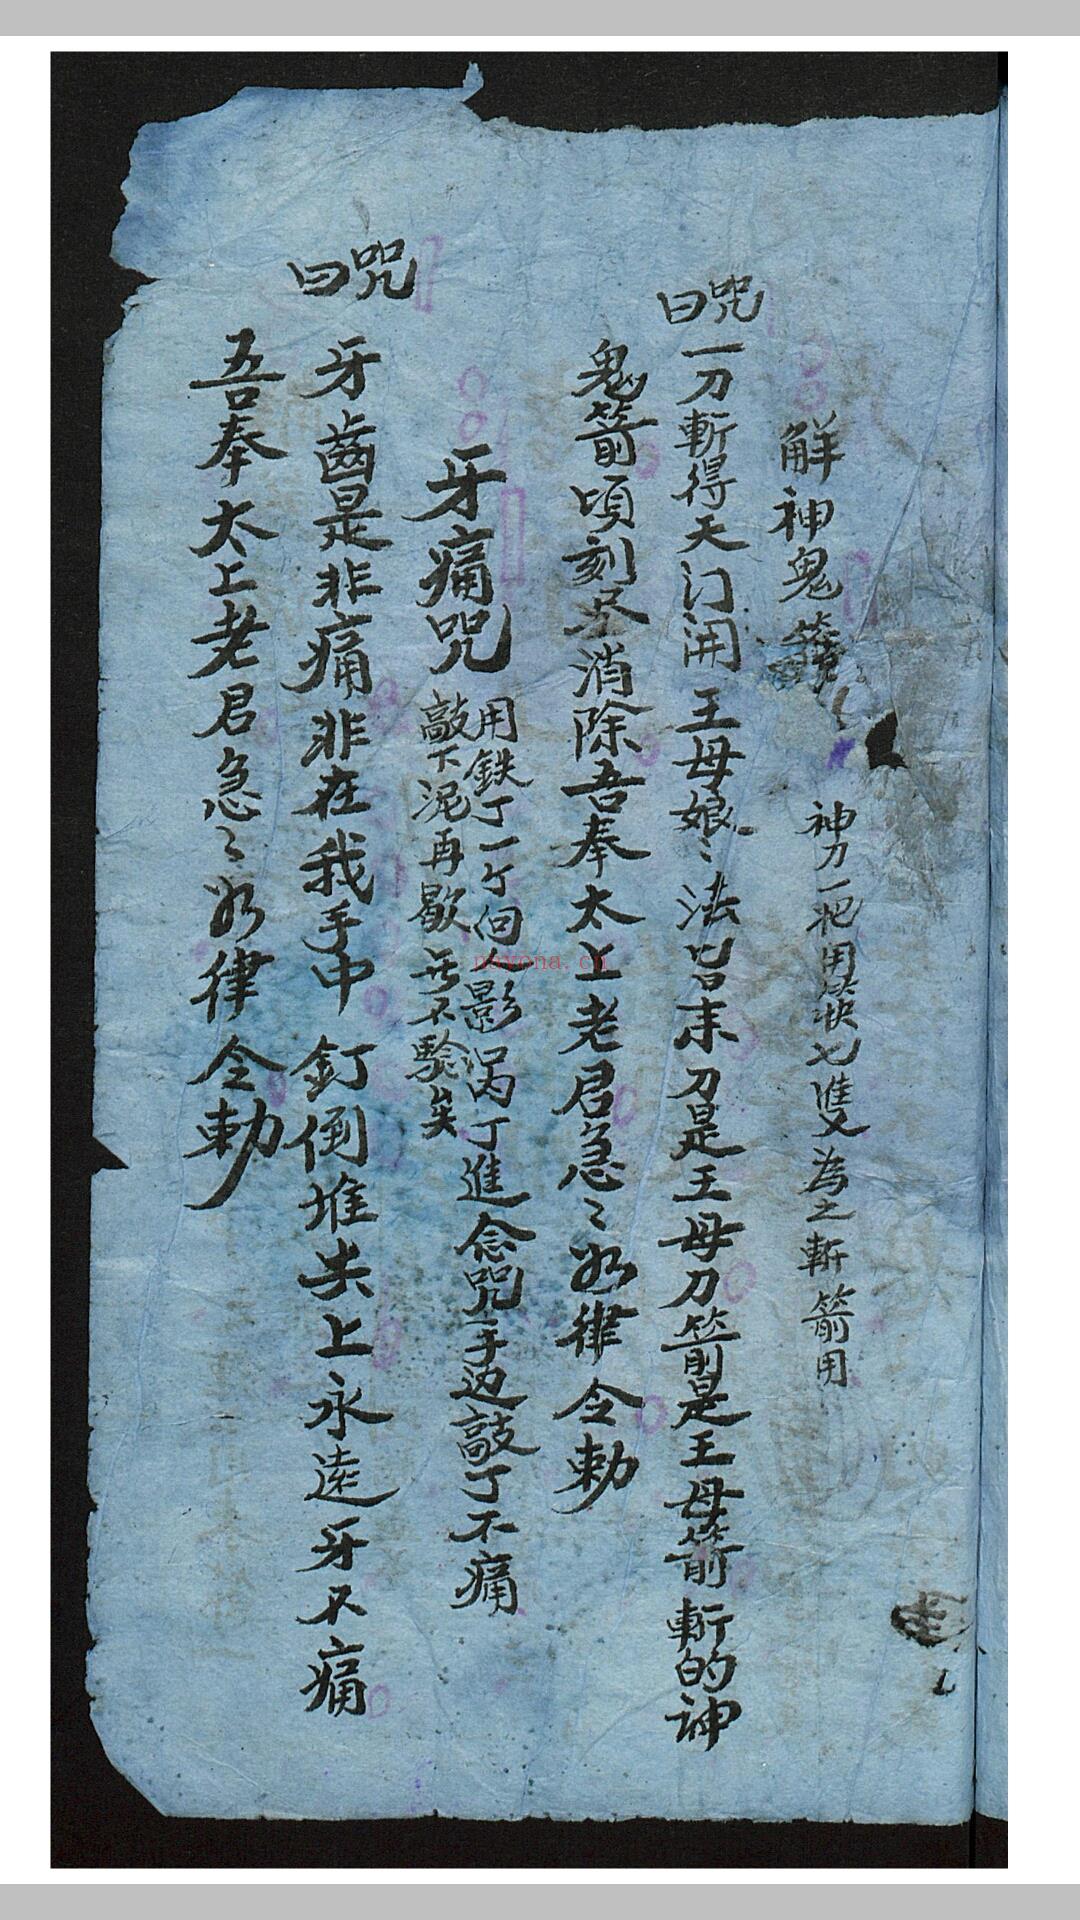 解神鬼箭
神刀一把用筷七隻為之斬箭用
咒曰
一刀斬得天门開王母娘〻法
末刀是王母刀箭是王母箭斬的神
鬼箭頃刻尽消除吾奉太上老君急〻如律令勅
牙痛咒
用鉄丁一个向人影
丁進念咒手边敲丁不痛
敲下泥再歇 無不驗矣
咒曰
牙齒是非痛非在我手中釘倒堆头上永遠牙不痛
吾奉太上老君急〻如律令勅
nayona.cn